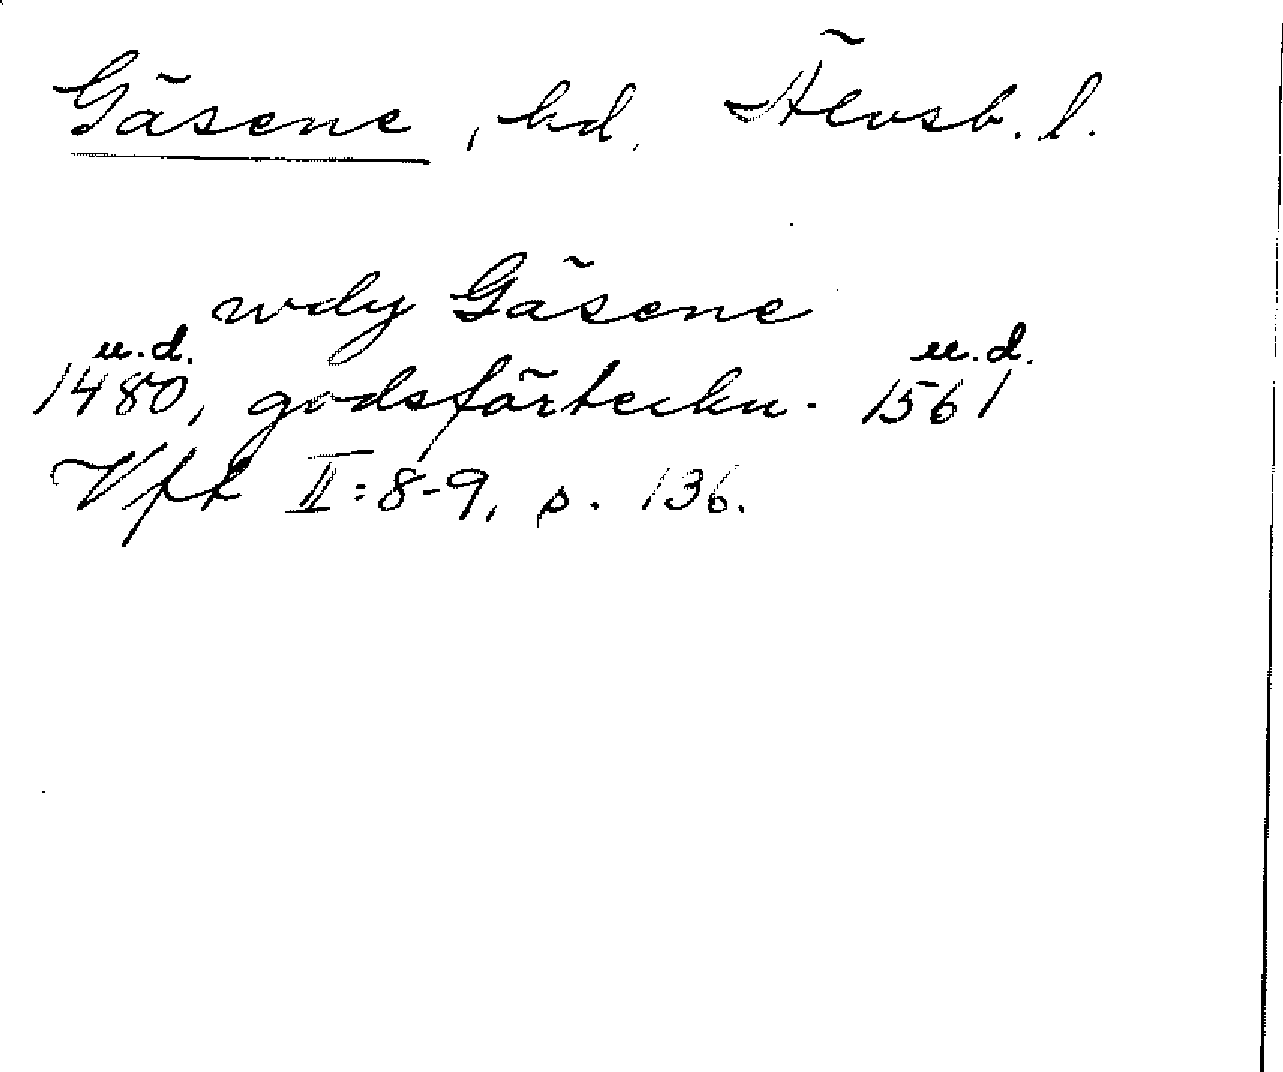 Gäsene, hd. Älvsb. l.
wdy Gäsene
u.d. u.d.
1480, godsförteckn. 1561
Vfk II:8-9, p. 136.